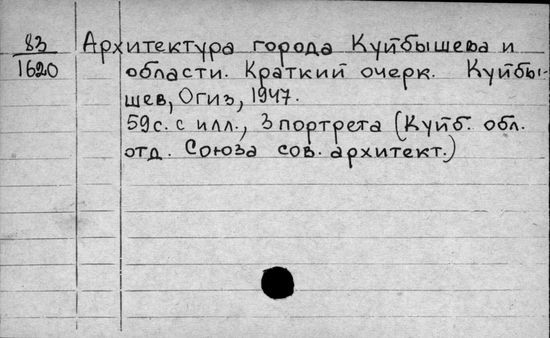 83 Архитектура города Куйбышева и
1620 области. Краткий очерк. Куйбы-
шев, Огиз, 1947.
59с. с илл., 3 портрета (Куйб. обл.
отд. Союза сов. архитект.)